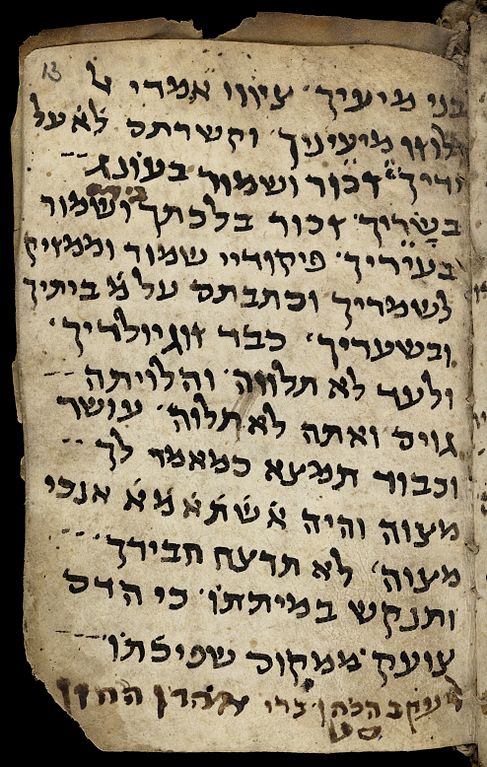 13
בני מיעיך׳ ציווי אמרי ל
ילוזו מיעיניך׳ וקשרתם לא על
ידיך׳ זכור ושמור בעונג
בשריך׳ זכור בלכתך ושמור
בעיריך׳ פיקודיי שמור וממזיק
לשמריך וכתבתם על מ ביתיך
ובשעריך׳ כבר
ולעד לא תלווה׳ והלויתה
גוים ואתה לא תלוה׳ עושר
וכבוד תמצא כמאמר לך
מצוה והיה אשתאמא אנכי
מצוה׳ לא תרצח חבירך
ותנקש במיתתו׳ כי הדם
צועק ממקום שפילתו׳
יעקב הכהן ברי אהרן החזן